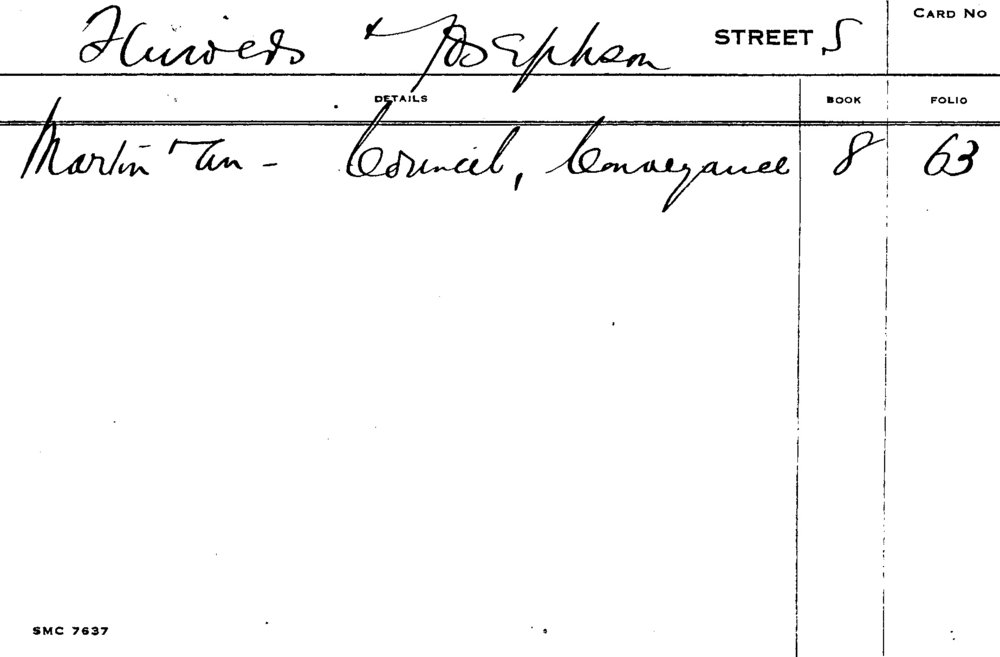 & Josephson STREET S CARD No
DETAILS BOOK FOLIO
Martin & an - Council, Conveyance 8 63
SMC 7637